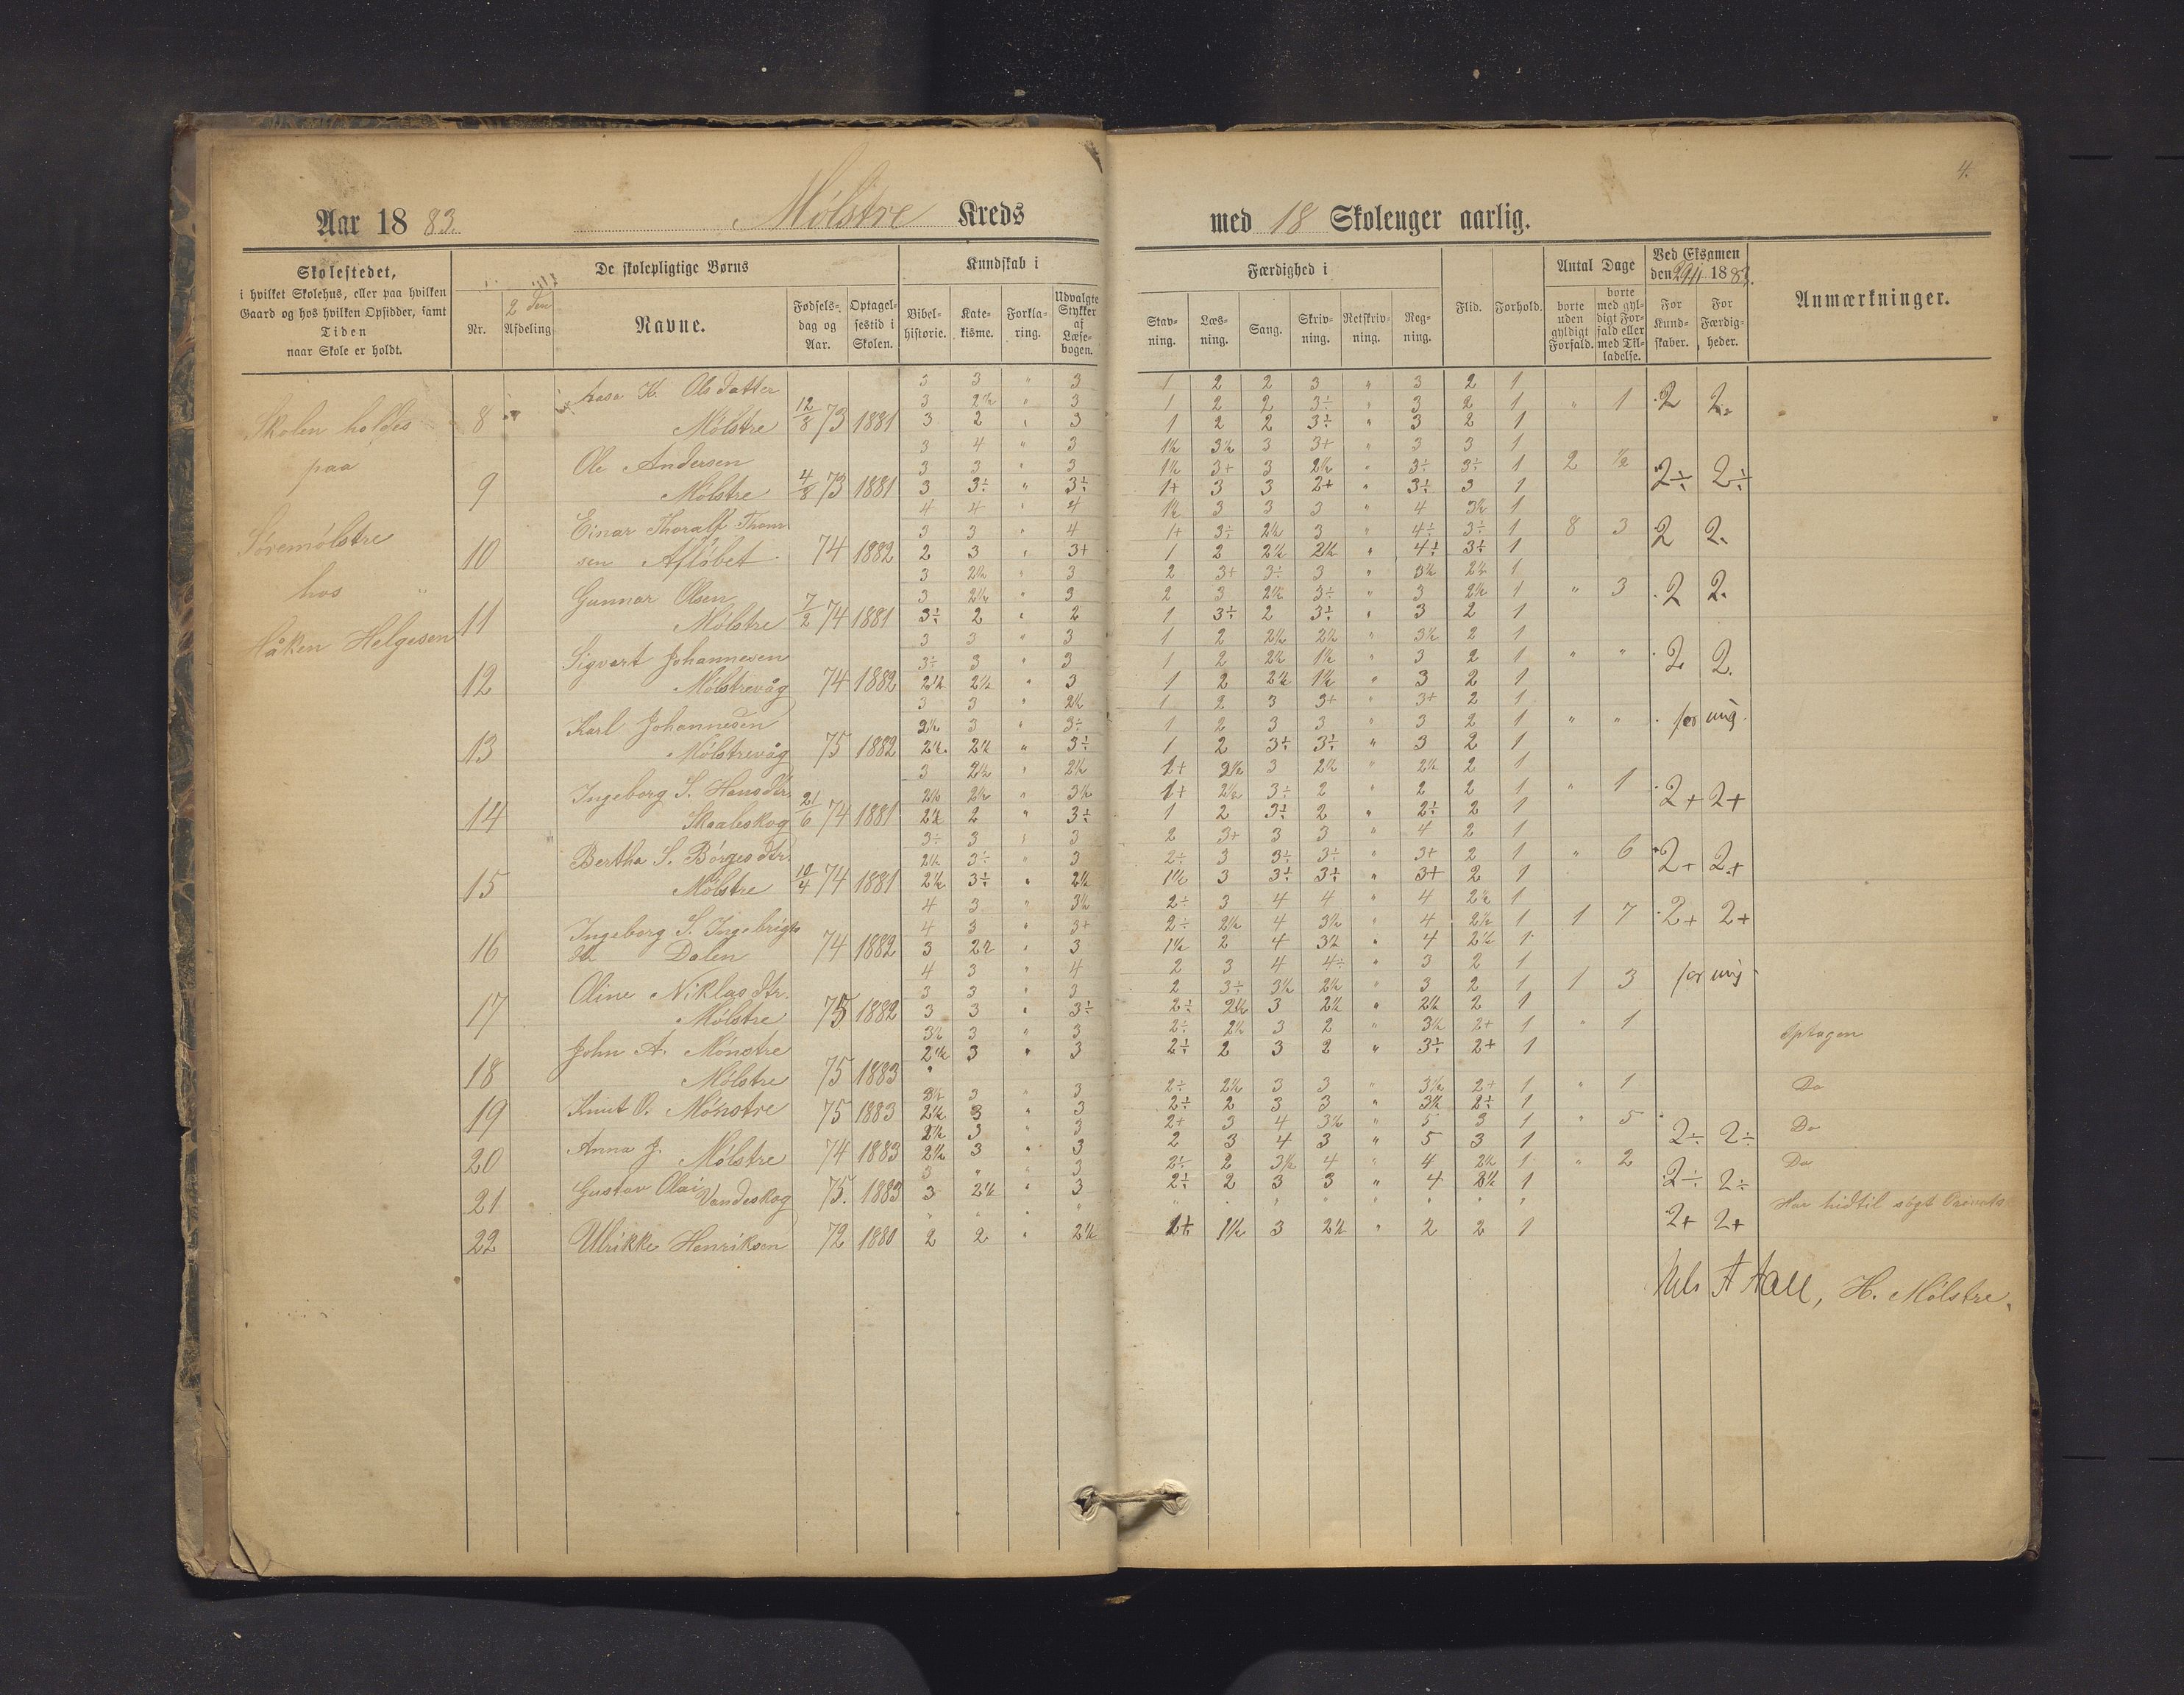 4.
Aar 1883. Mølstre Kreds med 18 Skoleuger aarlig.
Skolestedet,
i hvilket Skolehus, eller paa hvilken
Gaard og hos hvilken Opsidder, samt
Tiden
naar Skole er holdt.
De skolepligtige Børns
Nr.
2 den
Afdeling
Navne.
Fødsels-
dag og
Aar.
Optagel-
sestid i
Skolen.
Kundskab i
Bibel-
historie.
Kate-
kisme.
Forkla-
ring.
Udvalgte
Stykker
af
Læse-
bogen.
Færdighed i
Stav-
ning.
Læs-
ning.
Sang.
Skriv-
ning.
Retskriv-
ning.
Reg-
ning.
Flid.
Forhold.
Antal Dage
borte
uden
gyldigt
Forfald.
borte
med gyl-
digt For-
fald eller
med Til-
ladelse.
Ved Eksamen
den 1883.
For
Kund-
skaber.
For
Færdig-
heder.
Anmærkninger.
Skolen holdes
paa
Søremølstre
hos
Håken Helgesen
K. Olsdatter
8 Mølstre 12/8 73 1881
Ole Andersen
9 Mølstre 4/8 73 1881
Einar Thoralf Thom
10 sen Afløbet 74 1882
Gunnar Olsen
11 Mølstre 7/2 74 1881
Sigvart Johannesen
12 Mølstrevåg 74 1882
Karl Johannesen
13 Mølstrevåg 75 1882
Ingeborg S. Hansdtr.
14 Skaaleskog 21/6 74 1881
Bertha S. Børgesdtr.
15 Mølstre 10/4 74 1881
Ingeborg S. Ingebrigts
16 Dalen 74 1882
Oline Niklasdtr.
17 Mølstre 75 1882
John A. Mønstre
18 Mølstre 75 1883
19 Knut O. Mønstre 75 1883
20 Anna J. Mølstre 74 1883
21 Gustav Olai Vandeskog 75. 1883
22 Ulrikke Henriksen 72 1880
3 3 " 3 1 2 2 3 " 3 2 1
3 2½ " 3 1 2 2 3÷ " 3 2 1 " 1 2 2
3 2 " 3 1 2 2 3÷ " 3 2 1
3 4 3 1½ 3½ 3 3+ " 3 3 1
3 3 " 3 1½ 3+ 3 2½ " 3÷ 3÷ 1 2 ½ 2÷ 2÷
3 3÷ " 3÷ 1+ 3 3 2+ " 3÷ 3 1
4 4 " 4 1½ 3 3 3 " 4 3½ 1
3 3 " 4 1+ 3÷ 2½ 3 " 4÷ 3÷ 1 8 3 2 2.
2 3 " 3+ 1 2 2½ 2½ " 4÷ 3÷ 1
3 2½ " 3 2 3+ 3÷ 3 " 3½ 2½ 1
3 2½ " 3 2 3 2½ 3÷ " 3 2½ 1 " 3 2 2.
3÷ 2 " 2 1 3÷ 2 3÷ " 3 2 1
3 3 " 3 1 2 2½ 2½ " 3½ 2 1
3÷ 3 " 3 1 2 2½ 1½ " 3 2 1 " " 2 2.
2½ 2½ " 3 1 2 2½ 1½ " 3 2 1
3 3 " 2½ 1 2 3 3+ " 3+ 2 1
3½ 3 " 3÷ 1 2 3 3 " 3 2 1 " " for ung.
2½ 2½ " 3÷ 1 2 3÷ 3÷ " 3 2 1
3 2½ " 2½ 1+ 3½ 3 2½ " 2½ 2 1
2½ 2½ " 3½ 1+ 2½ 3÷ 2 " 2 2 1 " 1 2+ 2+
2½ 2 " 3÷ 1 2 3÷ 2 " 2÷ 2 1
3÷ 3 " 3 2 3+ 3 3 " 4 2 1
2½ 3÷ " 3 2÷ 3 3÷ 3÷ " 3+ 2 1 " 6 2+ 2+
2½ 3÷ " 2½ 1½ 3 3÷ 3÷ " 3+ 2 1
4 3 " 3½ 2÷ 3 4 4 " 4 2½ 1
4 3 " 3+ 2÷ 2½ 4 3½ " 4 2½ 1 1 7 2+ 2+
3 2½ " 3 1½ 2 4 3½ " 4 2½ 1
4 3 " 4 2 3 4 4÷ " 3 2 1
3 3 " 3 2 3÷ 3½ 2½ " 3 2 1 1 3 for ung
3 3 " 3÷ 2÷ 2½ 3 2½ " 2½ 2 1
3½ 3 " 3 2÷ 2½ 3 2 " 3½ 2+ 1 " 1 Optagen
2½ 3 " 3 2÷ 2 3 2 " 3÷ 2+ 1
3½ 3 " 3 2÷ 2½ 3 3 " 3½ 2+ 1 " 1 Do
2½ 3 " 3 2÷ 2 3 3 " 3½ 2÷ 1
2½ 3 " 3 2+ 3 4 3½ " 5 3 1 " 5 2÷ 2÷ Do
2½ 3 " 3 2 3 4 3 " 5 3 1
3 " " 3 2÷ 2 3½ 4 " 4 2½ 1 " 2 2÷ 2÷ Do
3 2½ " 3 2÷ 2 3 3 " 4 3½ 1
2 2 " 2½ 1+ 1½ 3 2½ " 2 2 1 2+ 2+ Har hidtil søgt
H. Mølstre.